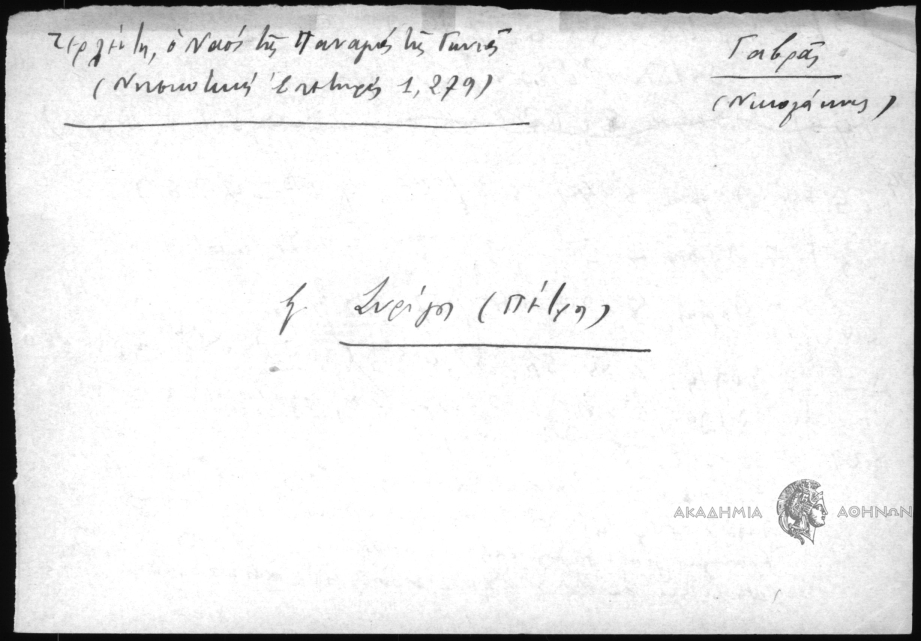 Ζερλέντη, ὁ Ναός τῆς Παναγιᾶς τῆς Γωνιᾶς
(Νησιωτική Ἐπετηρίς 1, 279)
Γαβρᾶς
(Νικολάκης)
Συρίγου (Πέτρη)
ΑΚΑΔΗΜΙΑ ΑΘΗΝΩΝ